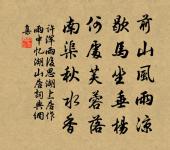 前山風雨涼
歇馬坐垂楊
何處芙蓉落
南渠秋水香
許渾雨後思湖上居作
雨中憶湖山居詞典網
集